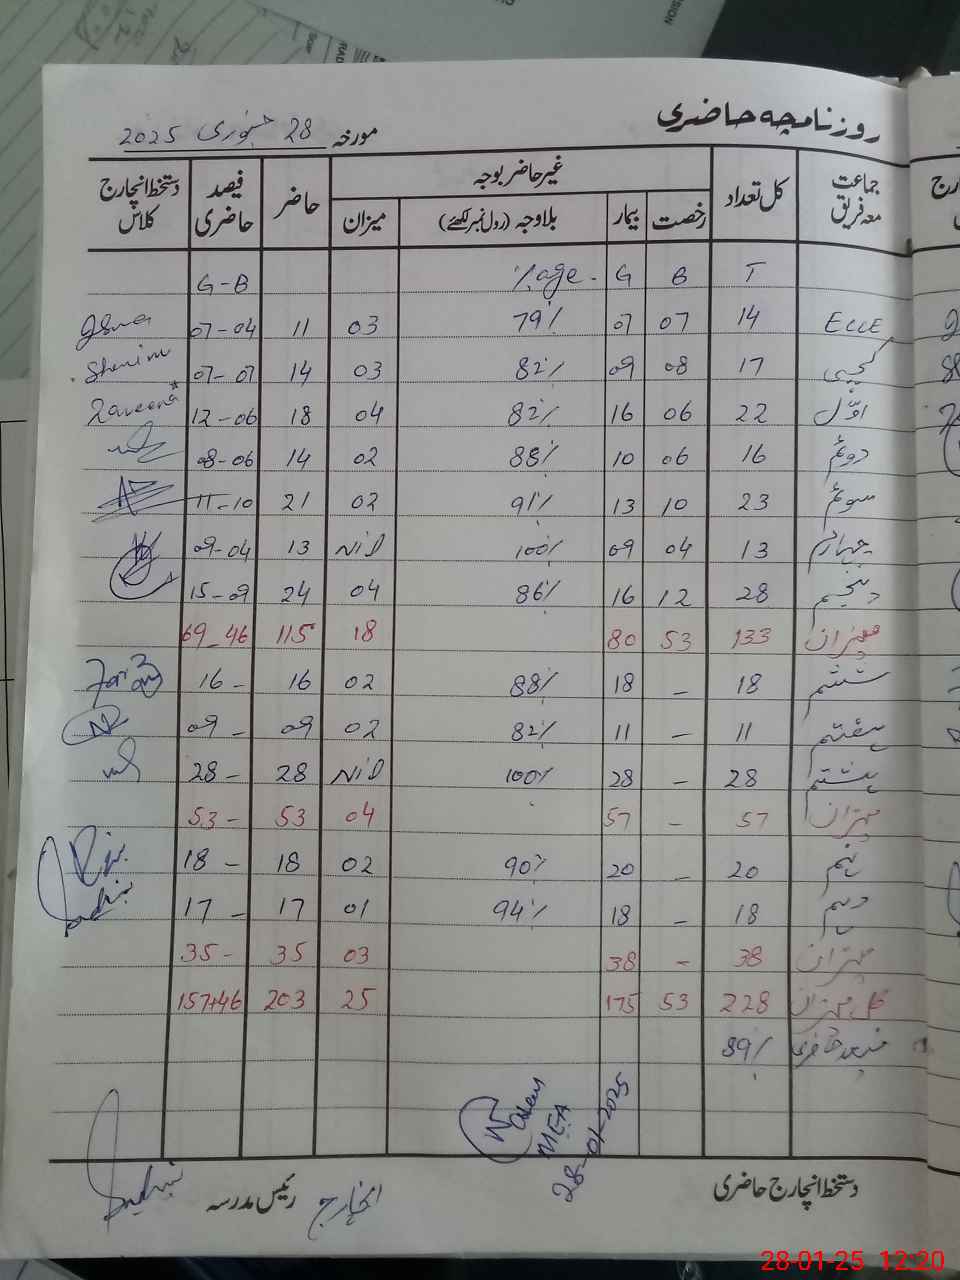 روزنامچہ حاضری
مورخہ 28 جنوری 2025
جماعت معہ فریق | کل تعداد | غیر حاضر بوجہ | حاضر | فیصد حاضری | دستخط انچارج کلاس
رخصت | بیمار | بلاوجہ (رول نمبر لکھئے) | میزان
T | B | G | %age - | G-B
ECCE | 14 | 07 | 07 | 79% | 03 | 11 | 07-04
کچی | 17 | 08 | 09 | 82% | 03 | 14 | 07-07 | Shenim
اوّل | 22 | 06 | 16 | 82% | 04 | 18 | 12-06 | Raveena
دوئم | 16 | 06 | 10 | 88% | 02 | 14 | 08-06
سوئم | 23 | 10 | 13 | 91% | 02 | 21 | 11-10
چہارم | 13 | 04 | 09 | 100% | Nil | 13 | 09-04
پنجم | 28 | 12 | 16 | 86% | 04 | 24 | 15-09
میزان | 133 | 53 | 80 | 18 | 115 | 69-46
ششم | 18 | - | 18 | 88% | 02 | 16 | 16 -
ہفتم | 11 | - | 11 | 82% | 02 | 09 | 09 -
ہشتم | 28 | - | 28 | 100% | Nil | 28 | 28 -
میزان | 57 | - | 57 | 04 | 53 | 53 -
نہم | 20 | - | 20 | 90% | 02 | 18 | 18 -
دہم | 18 | - | 18 | 94% | 01 | 17 | 17 -
میزان | 38 | - | 38 | 03 | 35 | 35 -
کل میزان | 228 | 53 | 175 | 25 | 203 | 157+46
فیصد حاضری | 89%
MEA
28-01-2025
دستخط انچارج حاضری
انچارج رئیس مدرسہ
28-01-25 12:20